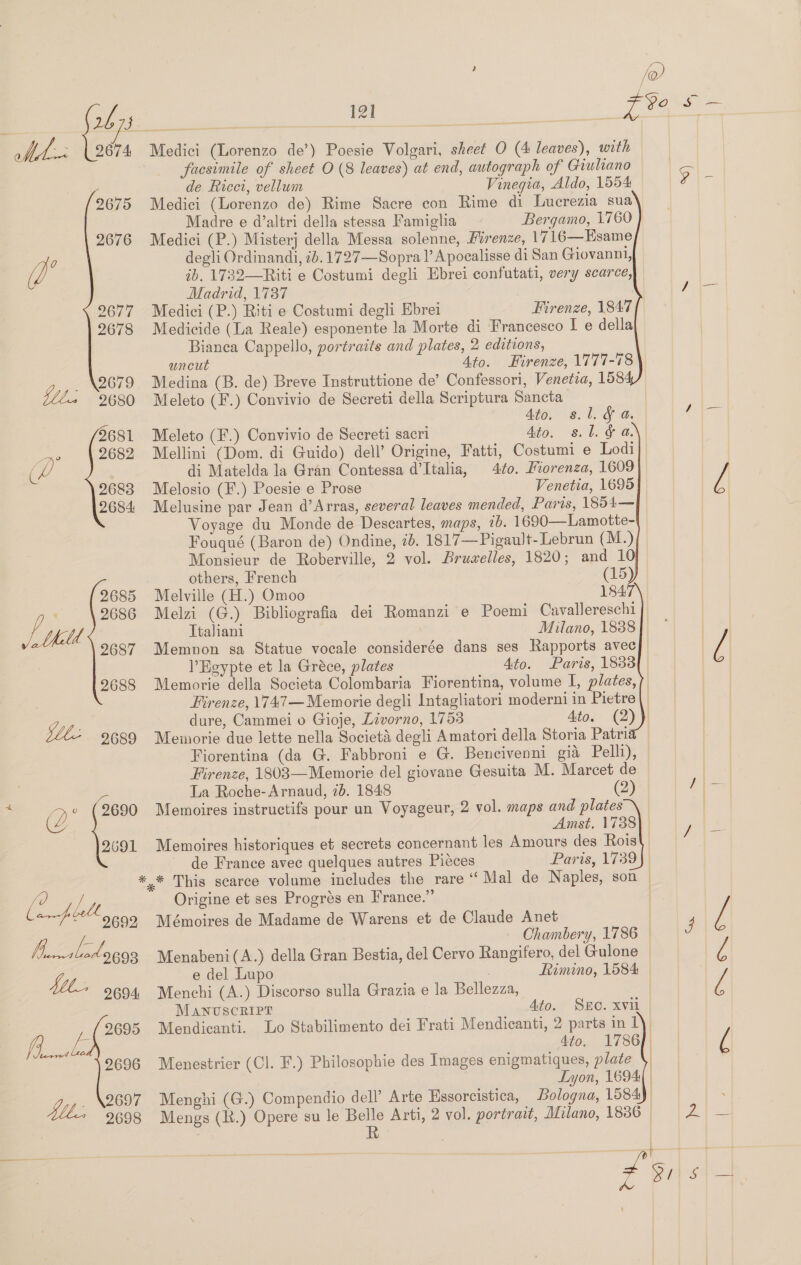 121
£90 5 —
2673
2674 Medici (Lorenzo de’) Poesie Volgari, sheet O (4 leaves), with
facsimile of sheet O (8 leaves) at end, autograph of Giuliano
de Ricci, vellum Vinegia, Aldo, 1554
2675 Medici (Lorenzo de) Rime Sacre con Rime di Lucrezia sua
Madre e d’altri della stessa Famiglia Bergamo, 1760
2676 Medici (P.) Misterj della Messa solenne, Firenze, 1716—Esame
degli Ordinandi, ib. 1727—Sopra l’Apocalisse di San Giovanni,
ib. 1732—Riti e Costumi degli Ebrei confutati, very scarce,
Madrid, 1737
2677 Medici (P.) Riti e Costumi degli Ebrei Firenze, 1847
2678 Medicide (La Reale) esponente la Morte di Francesco I e della
Bianca Cappello, portraits and plates, 2 editions,
uncut 4to. Firenze, 1777-78
2679 Medina (B. de) Breve Instruttione de’ Confessori, Venetia, 1584
2680 Meleto (F.) Convivio de Secreti della Scriptura Sancta
4to. s. l. & a.
2681 Meleto (F.) Convivio de Secreti sacri 4to. s. l. & a.
2682 Mellini (Dom. di Guido) dell’ Origine, Fatti, Costumi e Lodi
di Matelda la Gran Contessa d’Italia, 4to. Fiorenza, 1609
2683 Melosio (F.) Poesie e Prose Venetia, 1695
2684 Melusine par Jean d’Arras, several leaves mended, Paris, 1854—
Voyage du Monde de Descartes, maps, ib. 1690—Lamotte-
Fouqué (Baron de) Ondine, ib. 1817—Pigault-Lebrun (M.)
Monsieur de Roberville, 2 vol. Bruxelles, 1820; and 10
others, French (15)
2685 Melville (H.) Omoo 1847
2686 Melzi (G.) Bibliografia dei Romanzi e Poemi Cavallereschi
Italiani Milano, 1838
2687 Memnon sa Statue vocale considerée dans ses Rapports avec
l’Egypte et la Gréce, plates 4to. Paris, 1833
2688 Memorie della Societa Colombaria Fiorentina, volume I, plates,
Firenze, 1747—Memorie degli Intagliatori moderni in Pietre
dure, Cammei o Gioje, Livorno, 1753 4to. (2)
2689 Memorie due lette nella Società degli Amatori della Storia Patria
Fiorentina (da G. Fabbroni e G. Bencivenni già Pelli),
Firenze, 1803—Memorie del giovane Gesuita M. Marcet de
La Roche-Arnaud, ib. 1848 (2)
2690 Memoires instructifs pour un Voyageur, 2 vol. maps and plates
Amst. 1738
2691 Memoires historiques et secrets concernant les Amours des Rois
de France avec quelques autres Pièces Paris, 1739
*** This scarce volume includes the rare “Mal de Naples, son
Origine et ses Progrès en France.”
2692 Mémoires de Madame de Warens et de Claude Anet
Chambery, 1786
2693 Menabeni (A.) della Gran Bestia, del Cervo Rangifero, del Gulone
e del Lupo Rimino, 1584
2694 Menchi (A.) Discorso sulla Grazia e la Bellezza,
MANUSCRIPT 4to. SEC. XVII
2695 Mendicanti. Lo Stabilimento dei Frati Mendicanti, 2 parts in 1
4to. 1786
2696 Menestrier (Cl. F.) Philosophie des Images enigmatiques, plate
Lyon, 1694
2697 Menghi (G.) Compendio dell’ Arte Essorcistica, Bologna, 1584
2698 Mengs (R.) Opere su le Belle Arti, 2 vol. portrait, Milano, 1836
2 —
R